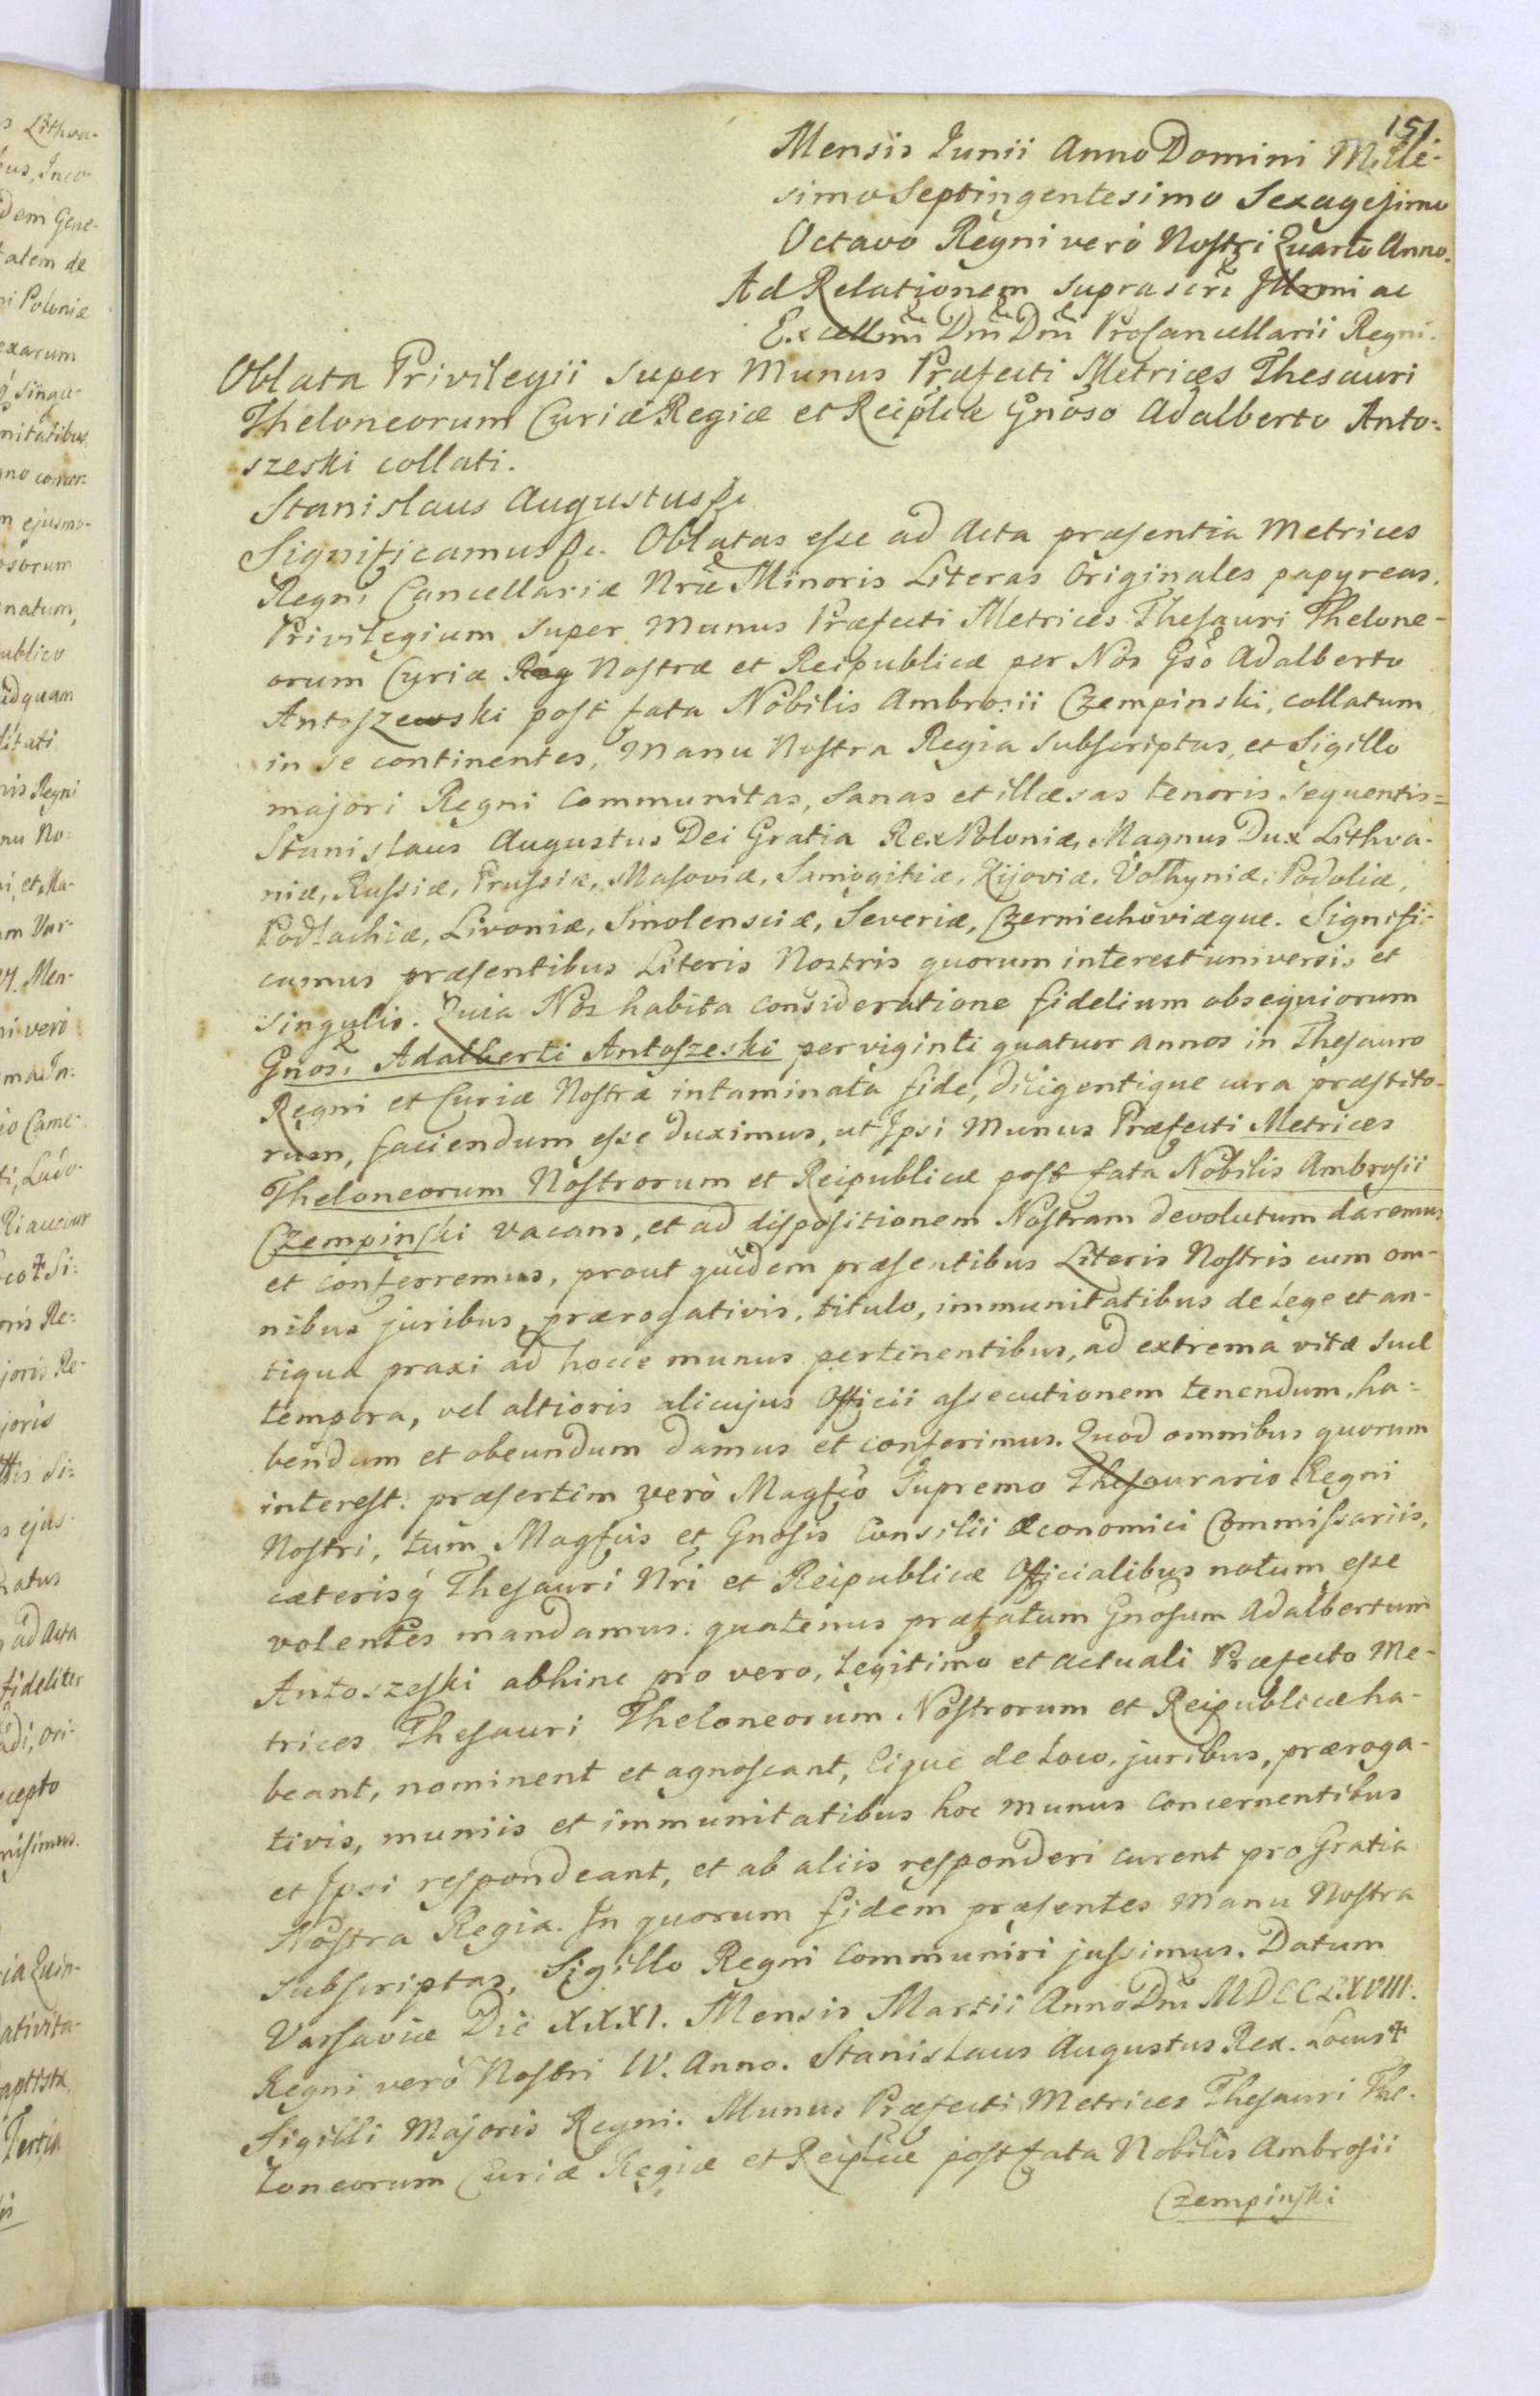 151.
Mensis Junii Anno Domini Mille-
simo Septingentesimo Sexagesimo
Octavo Regni verò Nostri Quarto Anno.
Ad Relationem suprascrī Jllrmi ac
Excellm̃i Dm̃i Dm̃i Procancellarii Regni.
Oblata Privilegii super Munus Præfecti Metrices Thesauri
Theloneorum Curiæ Regiæ et Reiplcæ Gnoso Adalberto Anto=
szeski collati.
Stanislaus Augustus &c
Significamus &c. Oblatas esse ad Acta præsentia Metrices
Regni Cancellariæ Nræ Minoris Literas Originales papyreas,
Privilegium super Munus Præfecti Metrices Thesauri Thelone-
orum Curiæ Reg Nostræ et Reipublicæ per Nos Gso Adalberto
Antoszewski post fata Nobilis Ambrosii Czempinski, collatum
in se continentes, Manu Nostra Regia subscriptas, et Sigillo
majori Regni Communitas, sanas et illæsas tenoris sequentis=
Stanislaus Augustus Dei Gratia Rex Poloniæ, Magnus Dux Lithva-
niæ, Russiæ, Prussiæ, Masoviæ, Samogitiæ, Kijoviæ, Volhyniæ, Podoliæ,
Podlachiæ, Livoniæ, Smolensciæ, Severiæ, Czerniechoviæque. Signifi-
camus præsentibus Literis Nostris quorum interest universis et
singulis. Quia Nos habita consideratione fidelium obsequiorum
Gnosi Adalberti Antoszeski per viginti quatuor annos in Thesauro
Regni et Curiæ Nostræ intaminata fide, diligentique cura præstito-
rum, faciendum esse duximus, ut Jpsi Munus Præfecti Metrices
Theloneorum Nostrorum et Reipublicæ post fata Nobilis Ambrosii
Czempinski vacans, et ad dispositionem Nostram devolutum daremus
et conferremus, prout quidem præsentibus Literis Nostris cum om-
nibus juribus, prærogativis, titulo, immunitatibus de Lege et an-
tiqua praxi ad hocce munus pertinentibus, ad extrema vitæ suæ
tempora, vel altioris alicujus Officii assecutionem tenendum, ha=
bendum et obeundum damus et conferimus. Quod omnibus quorum
interest: præsertim verò Magfco Supremo Thesaurario Regni
Nostri, tum Magfcis et Gnosis Consilii Œconomici Commissariis,
cæterisq́ Thesauri Nri et Reipublicæ Officialibus notum esse
volentes mandamus: quatenus præfatum Gnosum Adalbertum
Antoszeski abhinc pro vero, Legitimo et actuali Præfecto Me-
trices Thesauri Theloneorum Nostrorum et Reipublicæ ha-
beant, nominent et agnoscant, Eique de Loco, juribus, præroga-
tivis, muniis et immunitatibus hoc munus concernentibus
et Jpsi respondeant, et ab aliis responderi curent pro Gratia
Nostra Regia. Jn quorum fidem præsentes Manu Nostra
subscriptas, Sigillo Regni Communiri jussimus. Datum
Varsaviæ Die XXXI. Mensis Martii Anno Dni MDCCLXVIII.
Regni verò Nostri IV. Anno. Stanislaus Augustus Rex. Locus ✝
Sigilli Majoris Regni. Munus Præfecti Metrices Thesauri The-
loneorum Curiæ Regiæ et Reiplcæ post fata Nobilis Ambrosii
Czempinski